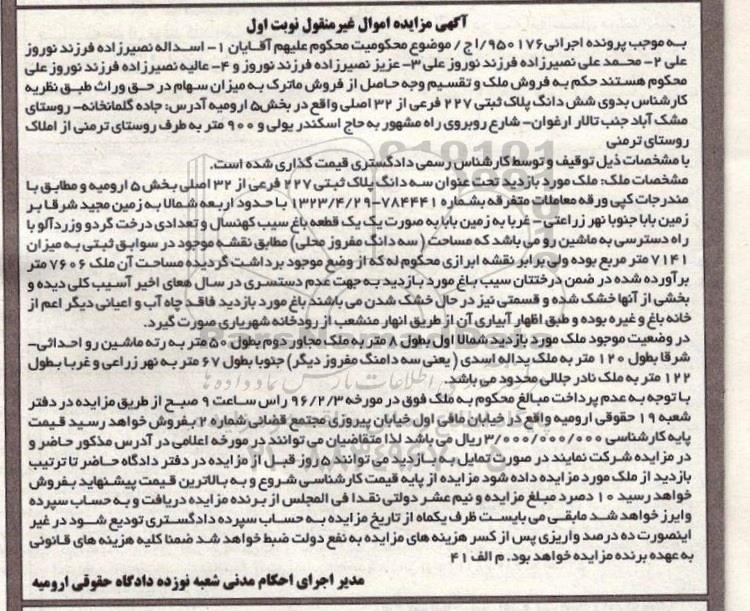 آگهی مزایده اموال غیرمنقول نوبت اول
به موجب پرونده اجرائی۹۵۰۱۷۶/اج/ موضوع محکومیت محکوم علیهم آقایان ۱- اسداله نصیرزاده فرزند نوروز
علی ۲- محمد علی نصیرزاده فرزند نوروز علی ۳- عزیز نصیرزاده فرزند نوروز و ۴- عالیه نصیرزاده فرزند نوروز علی
محکوم هستند حکم به فروش ملک و تقسیم وجه حاصل از فروش ماترک به میزان سهام در حق وراث طبق نظریه
کارشناس بدوی شش دانگ پلاک ثبتی ۲۲۷ فرعی از ۳۲ اصلی واقع در بخش۵ ارومیه آدرس: جاده گلمانخانه- روستای
مشک آباد جنب تالار ارغوان- شارع روبروی راه مشهور به حاج اسکندر یولی و ۹۰۰ متر به طرف روستای ترمنی از املاک
روستای ترمنی
با مشخصات ذیل توقیف و توسط کارشناس رسمی دادگستری قیمت گذاری شده است.
مشخصات ملک: ملک مورد بازدید تحت عنوان سه دانگ پلاک ثبتی ۲۲۷ فرعی از ۳۲ اصلی بخش ۵ ارومیه و مطابق با
مندرجات کپی ورقه معاملات متفرقه بشماره ۷۸۴۴۴۱-۱۳۲۳/۴/۲۹ با حدود اربعه شمالا به زمین مجید شرقا بر
زمین بابا جنوبا نهر زراعتی - غربا به زمین بابا به صورت یک یک قطعه باغ سیب کهنسال و تعدادی درخت گردو وزردآلو با
راه دسترسی به ماشین رو می باشد که مساحت ( سه دانگ مفروز محلی) مطابق نقشه موجود در سوابق ثبتی به میزان
۷۱۴۱ متر مربع بوده ولی برابر نقشه ابرازی محکوم له که از وضع موجود برداشت گردیده مساحت آن ملک ۷۶۰۶ متر
برآورده شده در ضمن درختتان سیب باغ مورد بازدید به جهت عدم دستسری در سال های اخیر آسیب کلی دیده و
بخشی از آنها خشک شده و قسمتی نیز در حال خشک شدن می باشند باغ مورد بازدید فاقد چاه آب و اعیانی دیگر اعم از
خانه باغ و غیره بوده و طبق اظهار آبیاری آن از طریق انهار منشعب از رودخانه شهریاری صورت گیرد.
در وضعیت موجود ملک مورد بازدید شمالا اول بطول ۸ متر به ملک مجاور دوم بطول ۵۰ متر به رته ماشین رو احداثی-
شرقا بطول ۱۲۰ متر به ملک یداله اسدی ( یعنی سه دامنگ مفروز دیگر) جنوبا بطول ۶۷ متر به نهر زراعی و غربا بطول
۱۲۲ متر به ملک نادر جلالی محدود می باشد.
با توجه به عدم پرداخت مبالغ محکوم به ملک فوق در مورخه ۹۶/۲/۳ راس ساعت ۹ صبح از طریق مزایده در دفتر
شعبه ۱۹ حقوقی ارومیه واقع در خیابان مافی اول خیابان پیروزی مجتمع قضائی شماره ۲ بفروش خواهد رسید قیمت
پایه کارشناسی ۳/۰۰۰/۰۰۰/۰۰۰ ریال می باشد لذا متقاضیان می توانند در مورخه اعلامی در آدرس مذکور حاضر و
در مزایده شرکت نمایند در صورت تمایل به بازدید می توانند ۵ روز قبل از مزایده در دفتر دادگاه حاضر تا ترتیب
بازدید از ملک مورد مزایده داده شود مزایده از پایه قیمت کارشناسی شروع و به بالاترین قیمت پیشنهاید بفروش
خواهد رسید ۱۰ دصرد مبلغ مزایده و نیم عشر دولتی نقدا فی المجلس از برنده مزایده دریافت و به حساب سپرده
وایرز خواهد شد مابقی می بایست ظرف یکماه از تاریخ مزایده به حساب سپرده دادگستری تودیع شود در غیر
اینصورت ده درصد واریزی پس از کسر هزینه های مزایده به نفع دولت ضبط خواهد شد ضمنا کلیه هزینه های قانونی
به عهده برنده مزایده خواهد بود. م الف ۴۱
مدیر اجرای احکام مدنی شعبه نوزده دادگاه حقوقی ارومیه